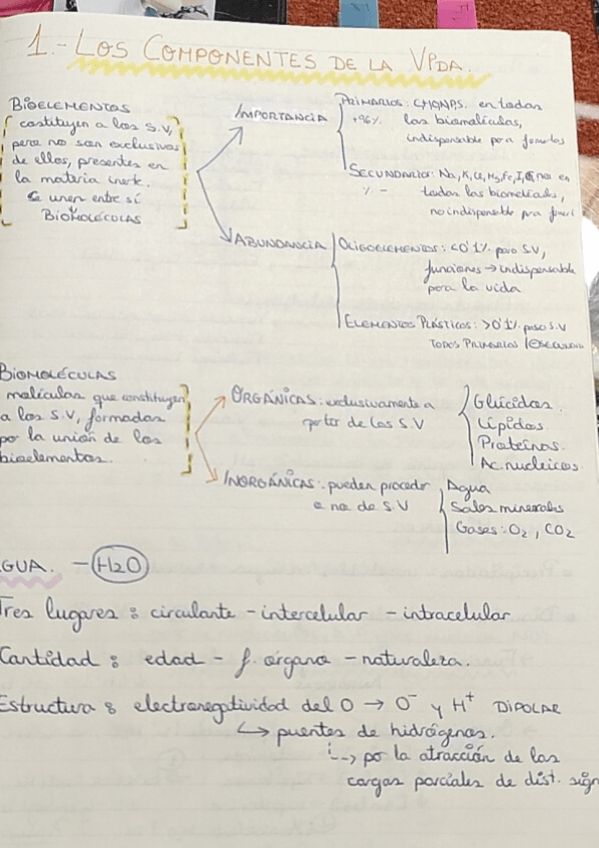 1.- LOS COMPONENTES DE LA VIDA.
BIOELEMENTOS
constituyen a los S.V,
pero no son exclusivos
de ellos, presentes en
la materia inerte.
Se unen entre sí
BIOMOLÉCULAS
IMPORTANCIA
PRIMARIOS: CHONPS. en todas
+96% las biomoléculas,
indispensable para
SECUNDARIOS: Na, K, Mg, Fe, I, no en
% - todas las
no indispensable para
ABUNDANCIA
OLIGOELEMENTOS: <0'1% peso S.V,
funciones → indispensable
para la vida
ELEMENTOS PLÁSTICOS: >0'1% peso S.V
TODOS PRIMARIOS /
BIOMOLÉCULAS
moléculas que constituyen
a los S.V, formadas
por la unión de los
bioelementos.
ORGÁNICAS: exclusivamente a
partir de los S.V
Glúcidos.
Lípidos.
Proteínas.
Ac. nucleicos.
INORGÁNICAS: pueden proceder
o no de S.V
Agua
Sales minerales
Gases: O₂, CO₂
GUA. - H2O
Tres lugares: circulante - intercelular - intracelular
Cantidad: edad - f. órgano - naturaleza.
Estructura: electronegatividad del O → O⁻ y H⁺ DIPOLAR
↳ puentes de hidrógenos.
↳ por la atracción de las
cargas parciales de dist. sign